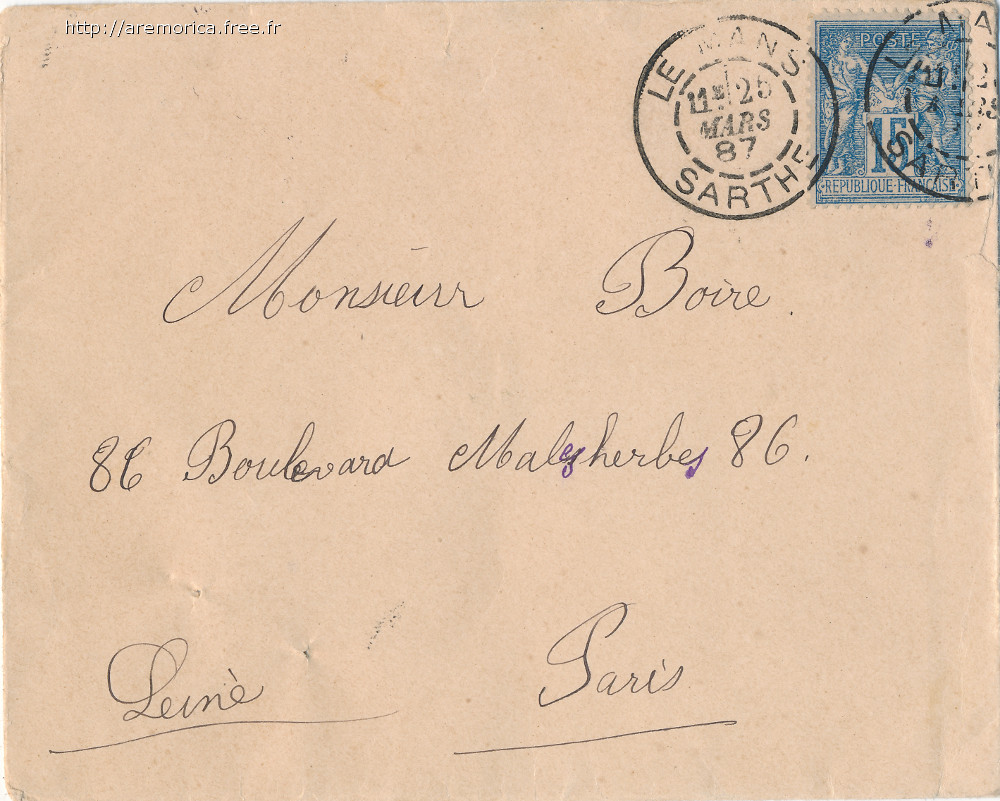 http://aremorica.free.fr
LE MANS
25
MARS
87
SARTHE
POSTE
15
REPUBLIQUE FRANÇAISE
Monsieur Boire
86 Boulevard Malesherbes 86.
Paris